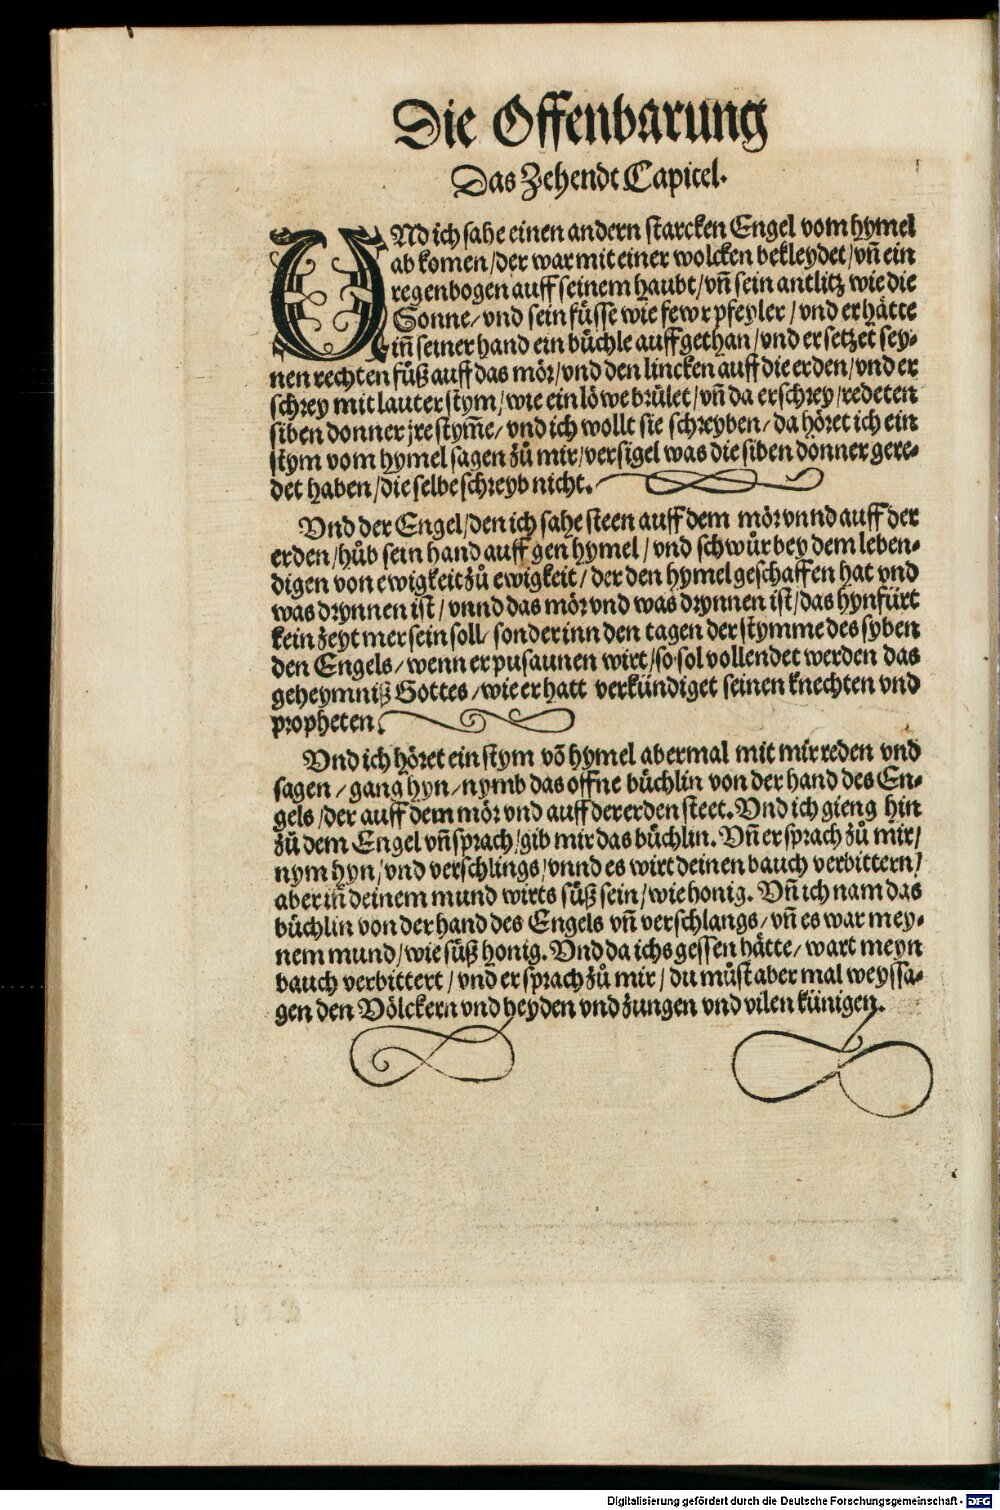 Die Offenbarung
Das Zehendt Capitel.
VNd ich sahe einen andern starcken Engel vom hymel
ab komen/der war mit einer wolcken bekleydet/vñ ein
regenbogen auff seinem haubt/vñ sein antlitz wie die
Sonne/vnd sein füsse wie fewr pfeyler/vnd er hätte
iñ seiner hand ein büchle auff gethan/vnd er setzet sey-
nen rechten fůß auff das mör/vnd den lincken auff die erden/vnd er
schrey mit lauter stym/wie ein löwe brület/vñ da er schrey/redeten
siben donner jre stym̃e/vnd ich wollt sie schreyben/da höret ich ein
stym vom hymel sagen zů mir/versigel was die siben donner gere-
det haben/die selbe schreyb nicht.
Vnd der Engel/den ich sahe steen auff dem mör vnnd auff der
erden/hůb sein hand auff gen hymel/vnd schwůr bey dem leben-
digen von ewigkeit zů ewigkeit/der den hymel geschaffen hat vnd
was drynnen ist/vnnd das mör vnd was drynnen ist/das hynfürt
kein zeyt mer sein soll/sonder inn den tagen der stymme des syben
den Engels/wenn er pusaunen wirt/so sol vollendet werden das
geheymniß Gottes/wie er hatt verkündiget seinen knechten vnd
propheten.
Vnd ich höret ein stym võ hymel abermal mit mir reden vnd
sagen/gang hyn/nymb das offne büchlin von der hand des En-
gels/der auff dem mör vnd auff der erden steet. Vnd ich gieng hin
zů dem Engel vñ sprach/gib mir das büchlin. Vñ er sprach zů mir/
nym hyn/vnd verschlings/vnnd es wirt deinen bauch verbittern/
aber iñ deinem mund wirts süß sein/wie honig. Vñ ich nam das
büchlin von der hand des Engels vñ verschlangs/vñ es war mey-
nem mund/wie süß honig. Vnd da ichs gessen hätte/wart meyn
bauch verbittert/vnd er sprach zů mir/du můst aber mal weyssa-
gen den Völckern vnd heyden vnd zungen vnd vilen künigen.
Digitalisierung gefördert durch die Deutsche Forschungsgemeinschaft - DFG